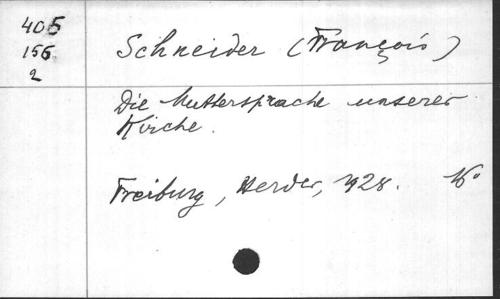 405
156
2
Schneider (François)
Die Muttersprache unserer
Kirche.
Freiburg, Herder, 1928. 16°